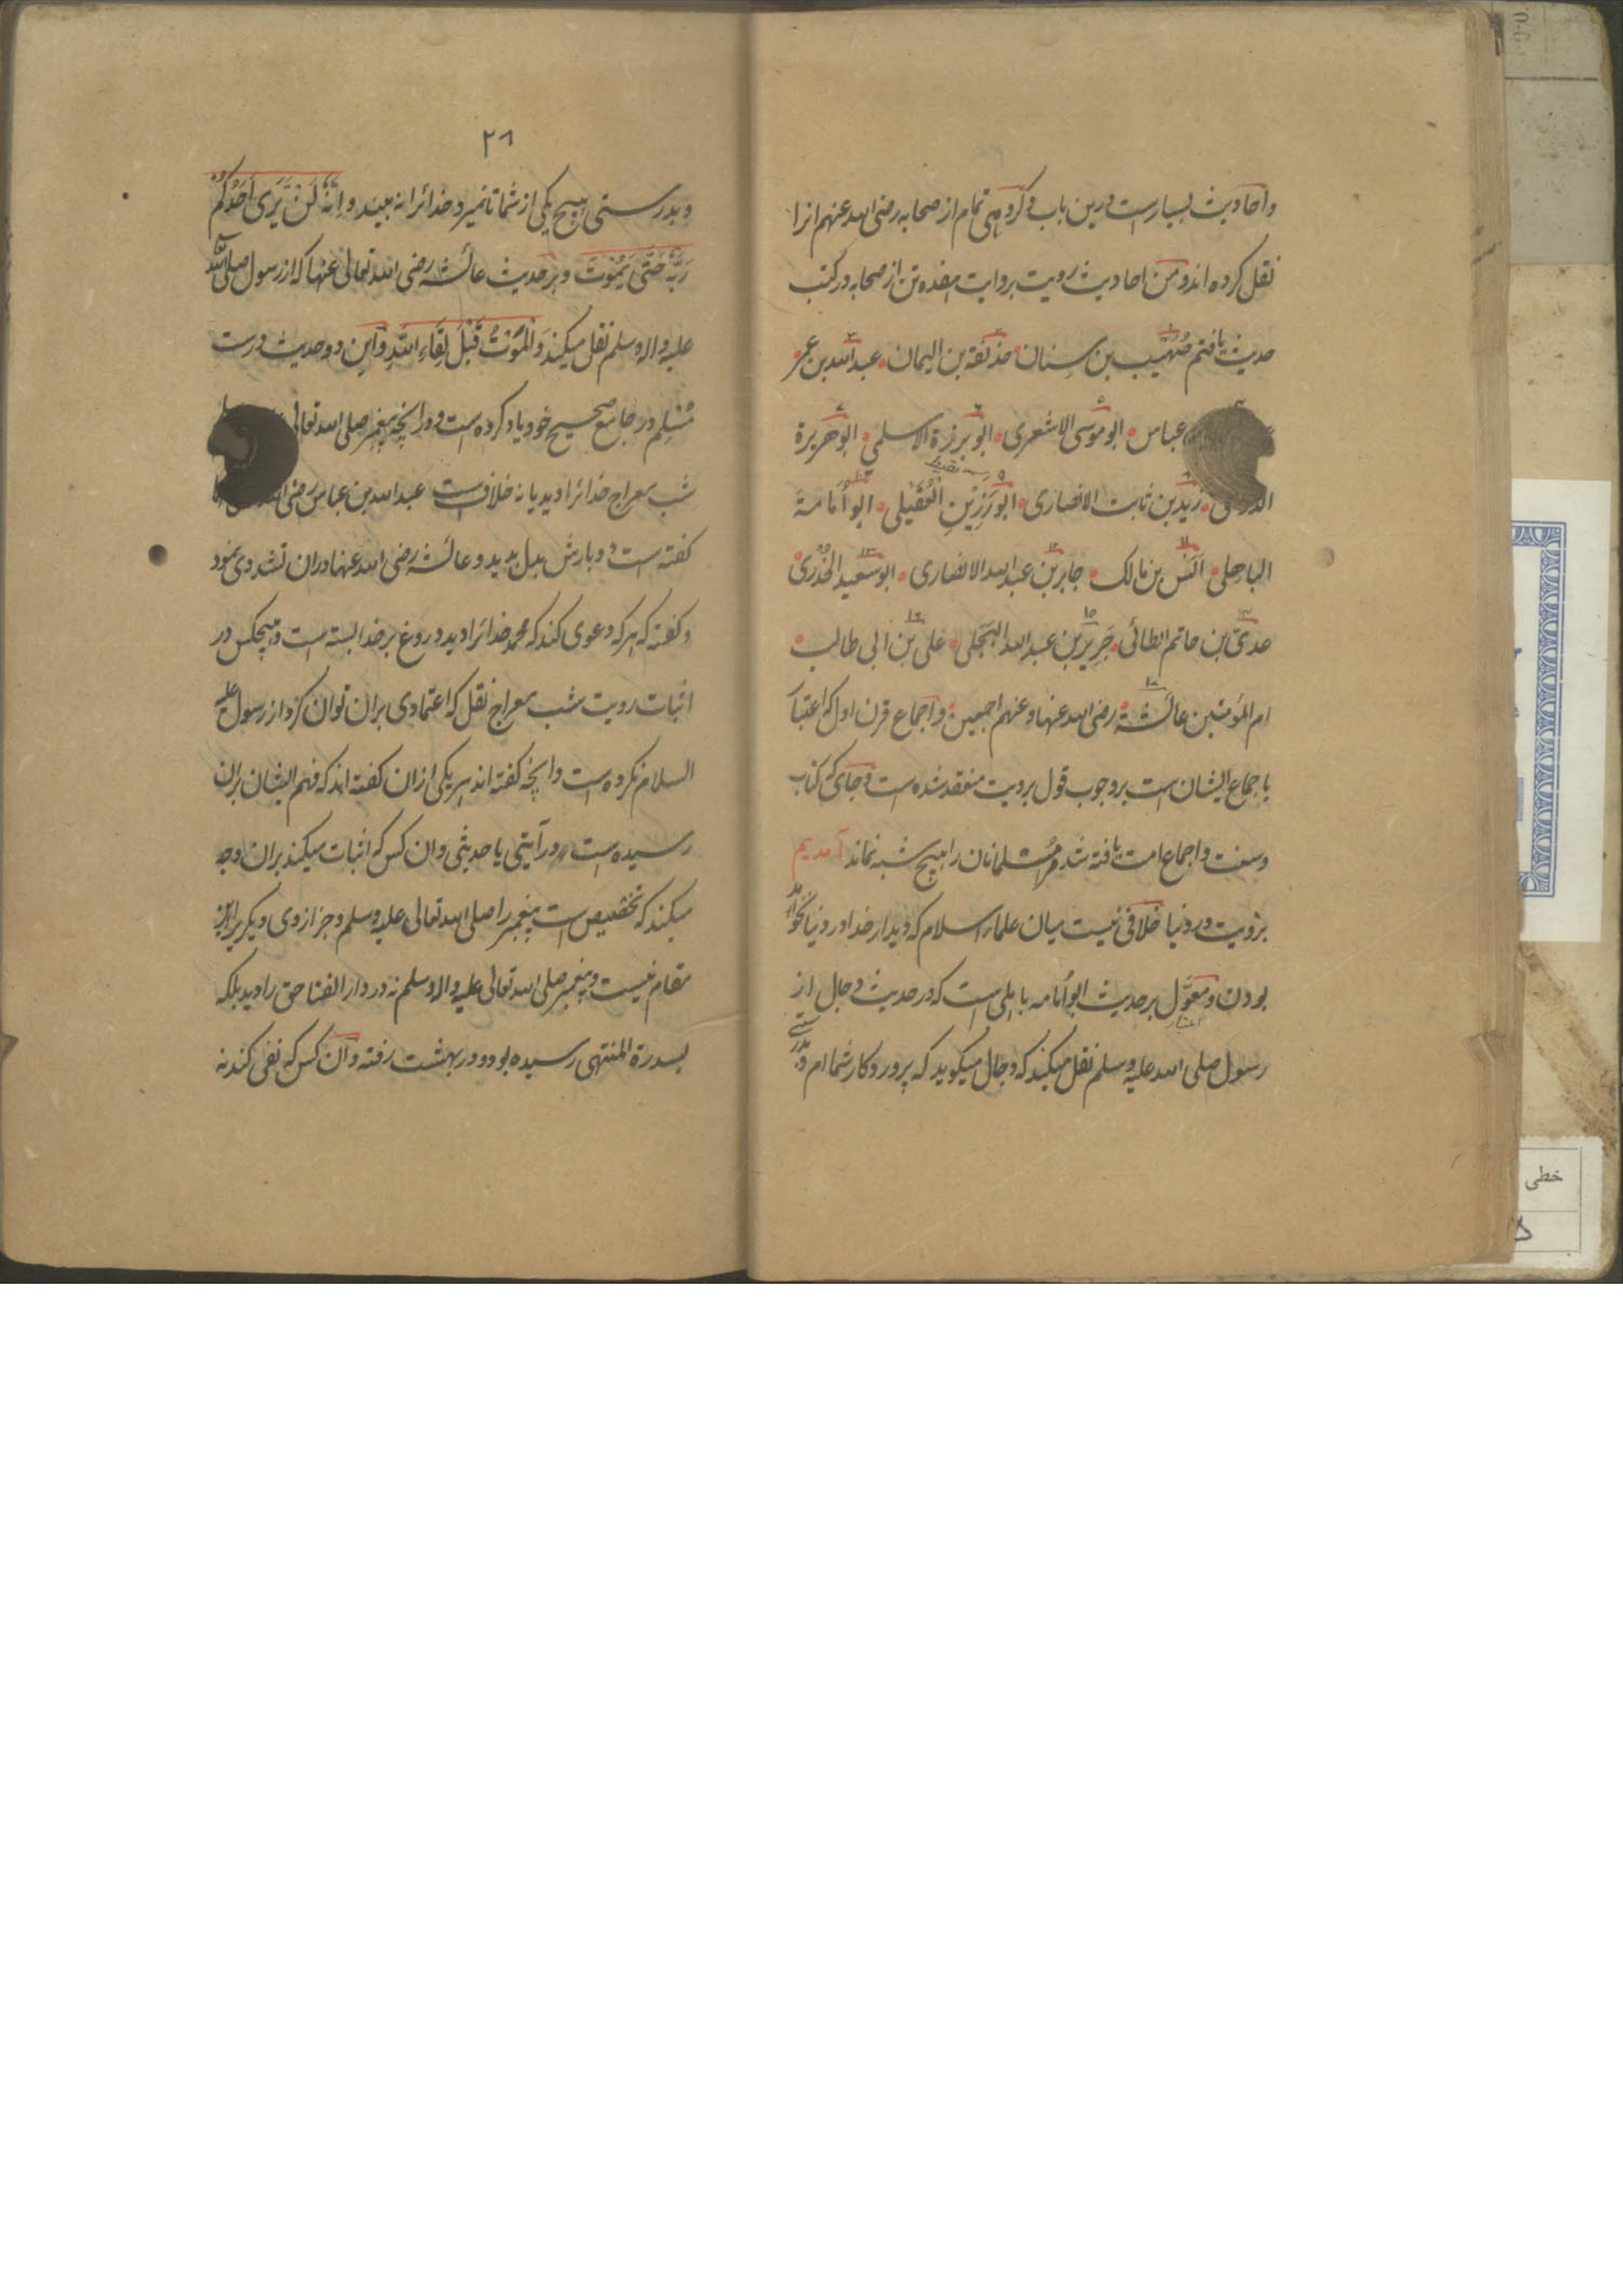 واحادیث بسیارست درین باب و گروهی تمام از صحابه رضی الله عنهم انرا
نقل کرده اند و من احادیث رویت بروایت هفده تن از صحابه در کتب
حدیث یافتم صُهَیب بن سِنان حذیفة بن الیمان عبد الله بن عمر
عباس ابو موسی الاشعری ابو برزة الاسلمی ابو هریرة
زید بن ثابت الانصاری ابو رَزِیْنِ الْعُقَیْلی ابو اُمامة
الباهلی اَنَس بن مالک جابر بن عبد الله الانصاری ابو سعید الخُدری
عدیّ بن حاتم الطائی جَرِیْر بن عبد الله البَجَلی علی بن ابی طالب
ام المؤمنین عائشة رضی الله عنها و عنهم اجمعین و اجماع قرن اول که اعتبار
باجماع ایشان است بر وجوب قول برویت منعقد شده است و جای که کتاب
و سنت و اجماع امت یافته شد هر مُسلمانان را هیچ شبه نماند آمدیم
برویت در دنیا خلافی نیست میان علماء اسلام که دیدار خدا در دنیا نخواهد
بودن و مُعَوَّل بر حدیث ابو اُمامه باهلی است که در حدیث دجال از
رسول صلی الله علیه وسلم نقل میکند که دجال میکوید که پروردکار شما ام و بدرستی
۲۸
و بدرستی هیچ یکی از شما تا نمیرد خدائرا نه بیند و اِنَّهٗ لَنْ یَّرٰی اَحَدُکُمْ
رَبَّهٗ حَتّٰی یَمُوْتَ و بر حدیث عائشه رضی الله تعالی عنها که از رسول صلی الله
علیه واله وسلم نقل میکند وَالْمَوْتُ قَبْلَ لِقَاءِ اللّٰهِ و این دو حدیث درست
مُسْلِم در جامع صحیح خود یاد کرده است و در انچه پیغمبر صلی الله تعالی
شب معراج خدائرا دید یا نه خلاف است عبد الله بن عباس رضی
کفته است دو بارش بدل بدید و عائشه رضی الله عنها دران تشددی نمود
و کفته که هر که دعوی کند که محمد خدائرا دید دروغ بر خدا بسته است و هیچکس در
اثبات رویت شب معراج نقل که اعتمادی بران توان کرد از رسول علیه
السلام نکرده است و انچه کفته اند هر یکی ازان کفته اند که فهم ایشان بران
رسیده است در آیتی یا حدیثی و ان کس که اثبات میکند بران وجه
میکند که تخصیص است پیغمبر را صلی الله تعالی علیه وسلم و جز از وی دیکریرا این
مقام نیست و پیغمبر صلی الله تعالی علیه واله وسلم نه در دار الفنا حق را دید بلکه
بسدرة المنتهی رسیده بود و در بهشت رفته و آن کس که نفی کند نه
خطی